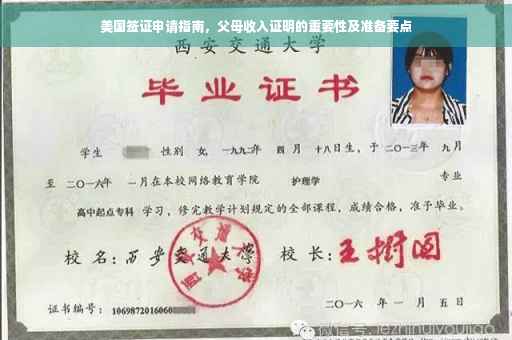 美国签证申请指南，父母收入证明的重要性及准备要点
西安交通大学
毕业证书
学生 性别 女, 一九九二年 四月 十八日生，于二〇一三年 九月
至 二〇一六年 一月在本校网络教育学院 护理学 专业
高中起点专科 学习，修完教学计划规定的全部课程，成绩合格，准予毕业。
校名：西安交通大学 校长：王树国
西安交通大学
证书编号：1069872016060
二〇一六年一月五日
微信号: jezhinuiyoujiao